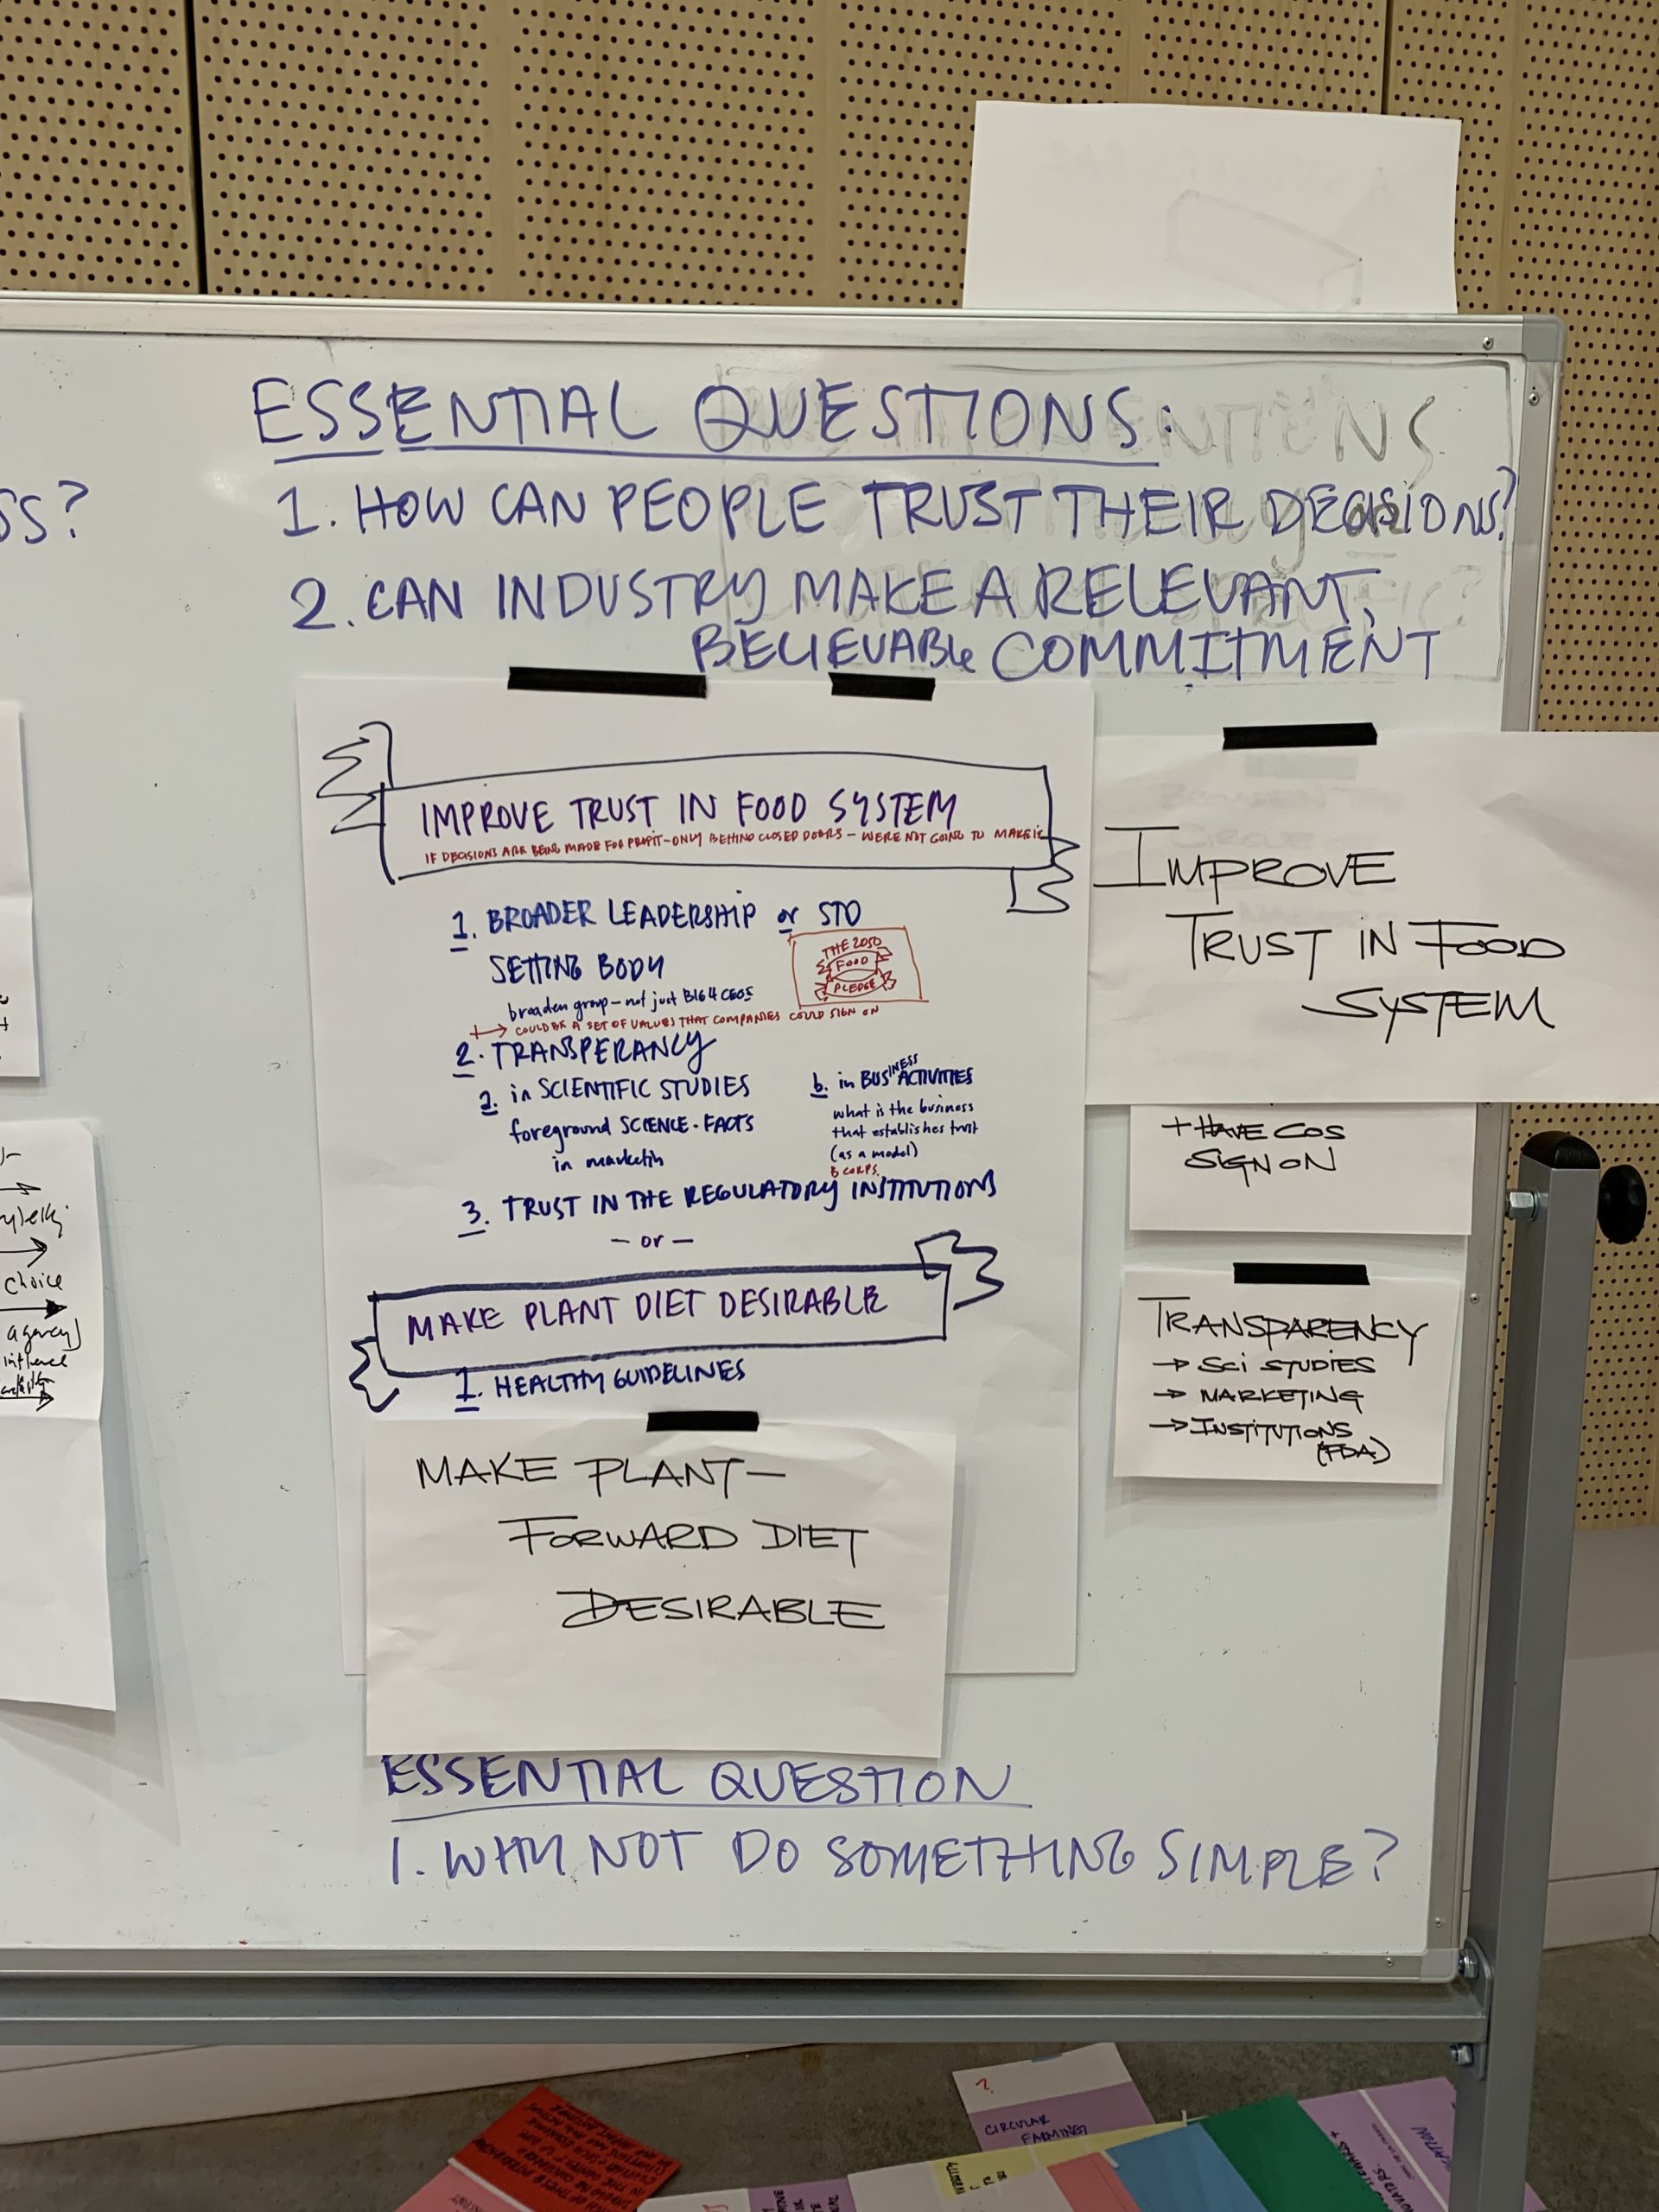 ESSENTIAL QUESTIONS:
1. HOW CAN PEOPLE TRUST THEIR DECISIONS?
SS?
2. CAN INDUSTRY MAKE A RELEVANT,
BELIEVABLE COMMITMENT
IMPROVE TRUST IN FOOD SYSTEM
IF DECISIONS ARE BEING MADE FOR PROFIT-ONLY BEHIND CLOSED DOORS - WERE NOT GOING TO MAKE IT
1. BROADER LEADERSHIP or STD
SETTING BODY
THE 2050
FOOD
PLEDGE
broaden group - not just BIG 4 CEOS
COULD BE A SET OF VALUES THAT COMPANIES COULD SIGN ON
2. TRANSPERANCY
a. in SCIENTIFIC STUDIES
foreground SCIENCE · FACTS
in marketin
b. in BUSINESS ACTIVITIES
what is the business
that establishes trust
(as a model)
B CORPS.
3. TRUST IN THE REGULATORY INSTITUTIONS
- or -
MAKE PLANT DIET DESIRABLE
1. HEALTHY GUIDELINES
MAKE PLANT-
FORWARD DIET
DESIRABLE
IMPROVE
TRUST IN FOOD
SYSTEM
+ HAVE COS
SIGN ON
TRANSPARENCY
→ SCI STUDIES
→ MARKETING
→ INSTITUTIONS
(FDA)
choice
agency)
ESSENTIAL QUESTION
1. WHY NOT DO SOMETHING SIMPLE?
?.
CIRCULAR
FARMING?